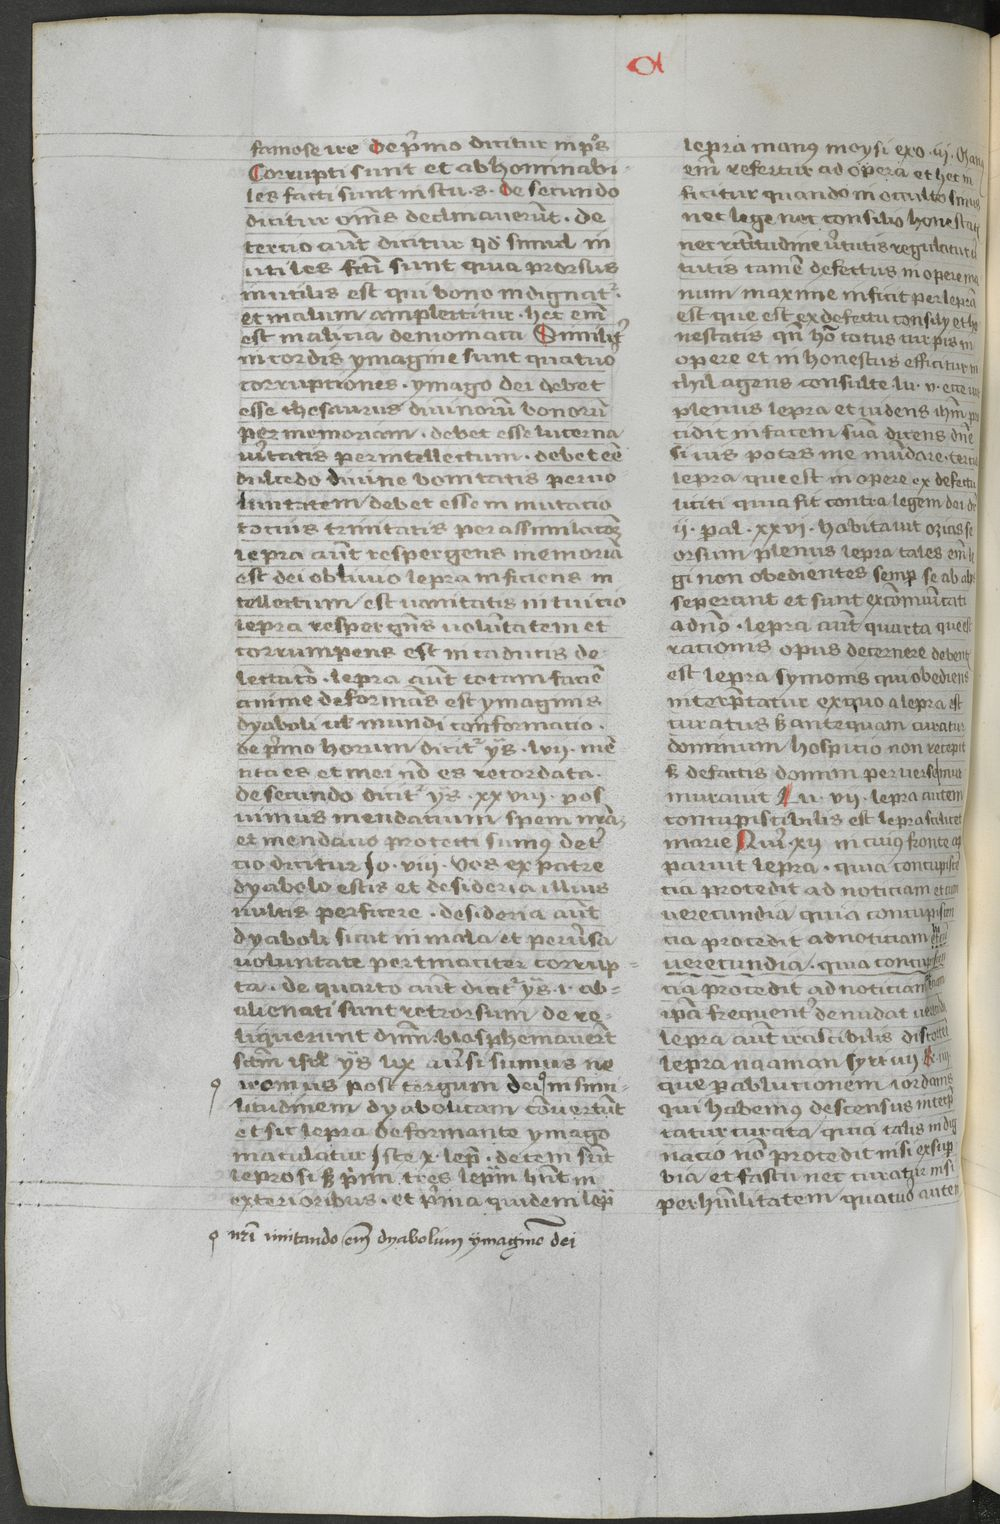 a
famose ire De p̄mo dicitur in ps̄
Corrupti sunt et abhominabi-
les facti sunt in stu. s. De secundo
dicitur om̄s declinauerūt. de
tercio aūt dicitur qd̄ simul in
utiles fc̄ti sunt quia prorsus
inutilis est qui bono indignat᷑.
et malum amplectitur. hec em̄
est malicia demoniaca Similit᷑
in cordis ymagine sunt quatuor
corruptiones. ymago dei debet
esse thesaurus diuinorū bonorū
per memoriam. debet esse lucerna
ūitatis per intellectum. debet eē
dulcedo diuine bonitatis per uo
luntatem debet esse in mutacio
tocius trinitatis per assimilacōem
lepra aūt respergens memoriā
est dei obliuio lepra inficiens in
tellectum est uanitatis intuicio
lepra respergēs uolūtatem et
corrumpens est in caducis de
lectacō. lepra aūt totam faciē
anime deformās est ymaginis
dyaboli ul̄ mundi conformacio.
de p̄mo horum dicit᷑ ys̄. lvii. mē
tita es et mei nō es recordata.
de secundo dicit᷑ ys̄. xxviii. pos
uimus mendacium spem nrā
et mendacio protecti sumꝰ de t᷑
cio dicitur Jo. viii. vos ex patre
dyabolo estis et desideria illius
uultis perficere. desideria aūt
dyaboli sicut in mala et peruersa
uoluntate pertinaciter corrup-
ta. de quarto aūt dicit᷑ ys̄. i. ab-
alienati sunt retrorsum de re-
liquerunt dn̄m. blasphemauerūt
scm̄ isrl̄ ys̄ lix auersi sumus ne
iremus post tergum dei in simi-
litudinem dyabolicam cōuertūt
et sic lepra deformante ymago
maculatur Iste x. lep̄. decem sūt
leprosi s₃ p̄mi tres lepram hn̄t in
exterioribus. et p̄ma quidem lep̄
nrī imitando em̄ dyabolum ymaginē dei
lepra manꝰ moysi exo. iii. Manꝰ
em̄ refertur ad opera et hec in
ficitur quando in occulto sinus
nec lege nec consilio honestatis
nec rectitudine ūtutis regulatur
tutis tamē defectus in opere ma
num maxime inficit per leprā
est que est ex defectu consilij et ho
nestatis qn̄ hō totus turpis in
opere et inhonestus efficitur ni
chil agens consulte lu. v. ecce uir
plenus lepra et uidens ihm̄ pro
cidit in faciem suā dicens dn̄e
si uis potes me mūdare. tercia
lepra que est in opere ex defectu
liciti quia fit contra legem dei
ii. pal. xxvi. habitauit ozias se
orsum plenus lepra tales em̄ le
gi non obedientes semp̄ se ab
seperant et sunt excōmūicati
a dn̄o. lepra aūt quarta que est
racionis opus decernere debent
est lepra symonis qui obediens
interp̄tatur ex quo a lepra est
curatus s₃ antequam curatur
dominum hospicio non recepit
s₃ de factis domini peruerse mur
murauit Lu. vii. lepra autem
concupiscibilis est lepra scilicet
marie Nu. xii in cuiꝰ fronte ap
paruit lepra. quia concupiscē
cia procedit ad noticiam et cum
uerecundia quia concupiscen
cia procedit ad noticiam et cū
uerecundia. quia concupiscen
cia procedit ad noticiam
ipā frequent᷑ denudat uerecūdia
lepra aūt irascibilis
lepra naaman syri iiii Re. iiii
que p ablucionem iordanis
qui habemꝰ descensus interp̄
tatur curata quia talis indig
nacio nō procedit nisi ex sup̄
bia et fastu nec curatur nisi
per humilitatem quatuor autem